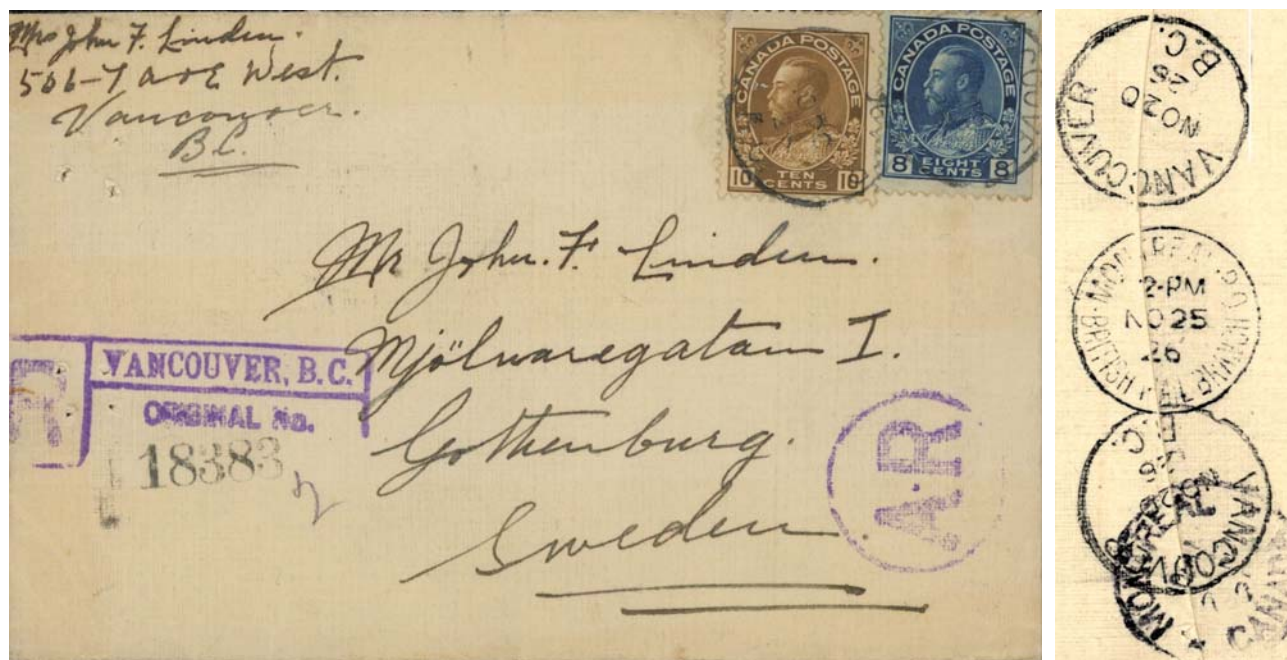 Mrs John F. Linden.
506-7 ave West.
Vancouver.
B.C.
CANADA POSTAGE
10 TEN CENTS 10
CANADA POSTAGE
8 EIGHT CENTS 8
Mr John. F. Linden.
Mjölnaregatan I.
Gothenburg.
Sweden
R
VANCOUVER, B.C.
ORIGINAL No.
18383
A.R
VANCOUVER
B.C.
NO 20
26
MONTREAL
2-PM
NO 25
26
VANCOUVER
MONTREAL